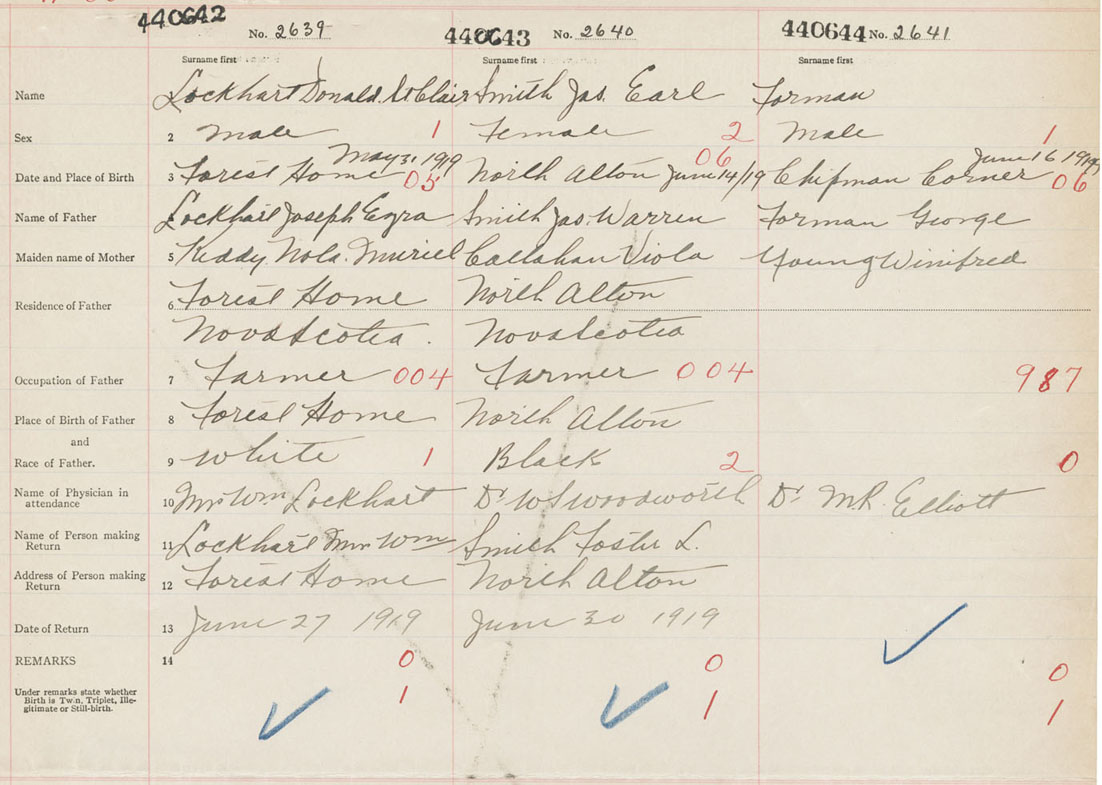 440642 No. 2639 440643 No. 2640 440644 No. 2641
Surname first Surname first Surname first
Name Lockhart Donald St Clair Smith Jas. Earl Forman
Sex 2 Male 1 Female 2 Male 1
May 31 1919 06 June 16 1919
Date and Place of Birth 3 Forest Home 05 North Alton June 14/19 Chipman Corner 06
Name of Father Lockhart Joseph Ezra Smith Jas. Warren Forman George
Maiden name of Mother 5 Keddy Nola. Muriel Callahan Viola Young Winifred
Residence of Father 6 Forest Home North Alton
Nova Scotia. Nova Scotia
Occupation of Father 7 Farmer 004 Farmer 004 987
Place of Birth of Father 8 Forest Home North Alton
and
Race of Father. 9 White 1 Black 2 0
Name of Physician in
attendance 10 Mrs Wm Lockhart Dr W S Woodworth Dr M.R. Elliott
Name of Person making
Return 11 Lockhart Mrs Wm Smith Foster L.
Address of Person making
Return 12 Forest Home North Alton
Date of Return 13 June 27 1919 June 30 1919
REMARKS 14 0 0 0
Under remarks state whether
Birth is Twin, Triplet, Ille-
gitimate or Still-birth. 1 1 1